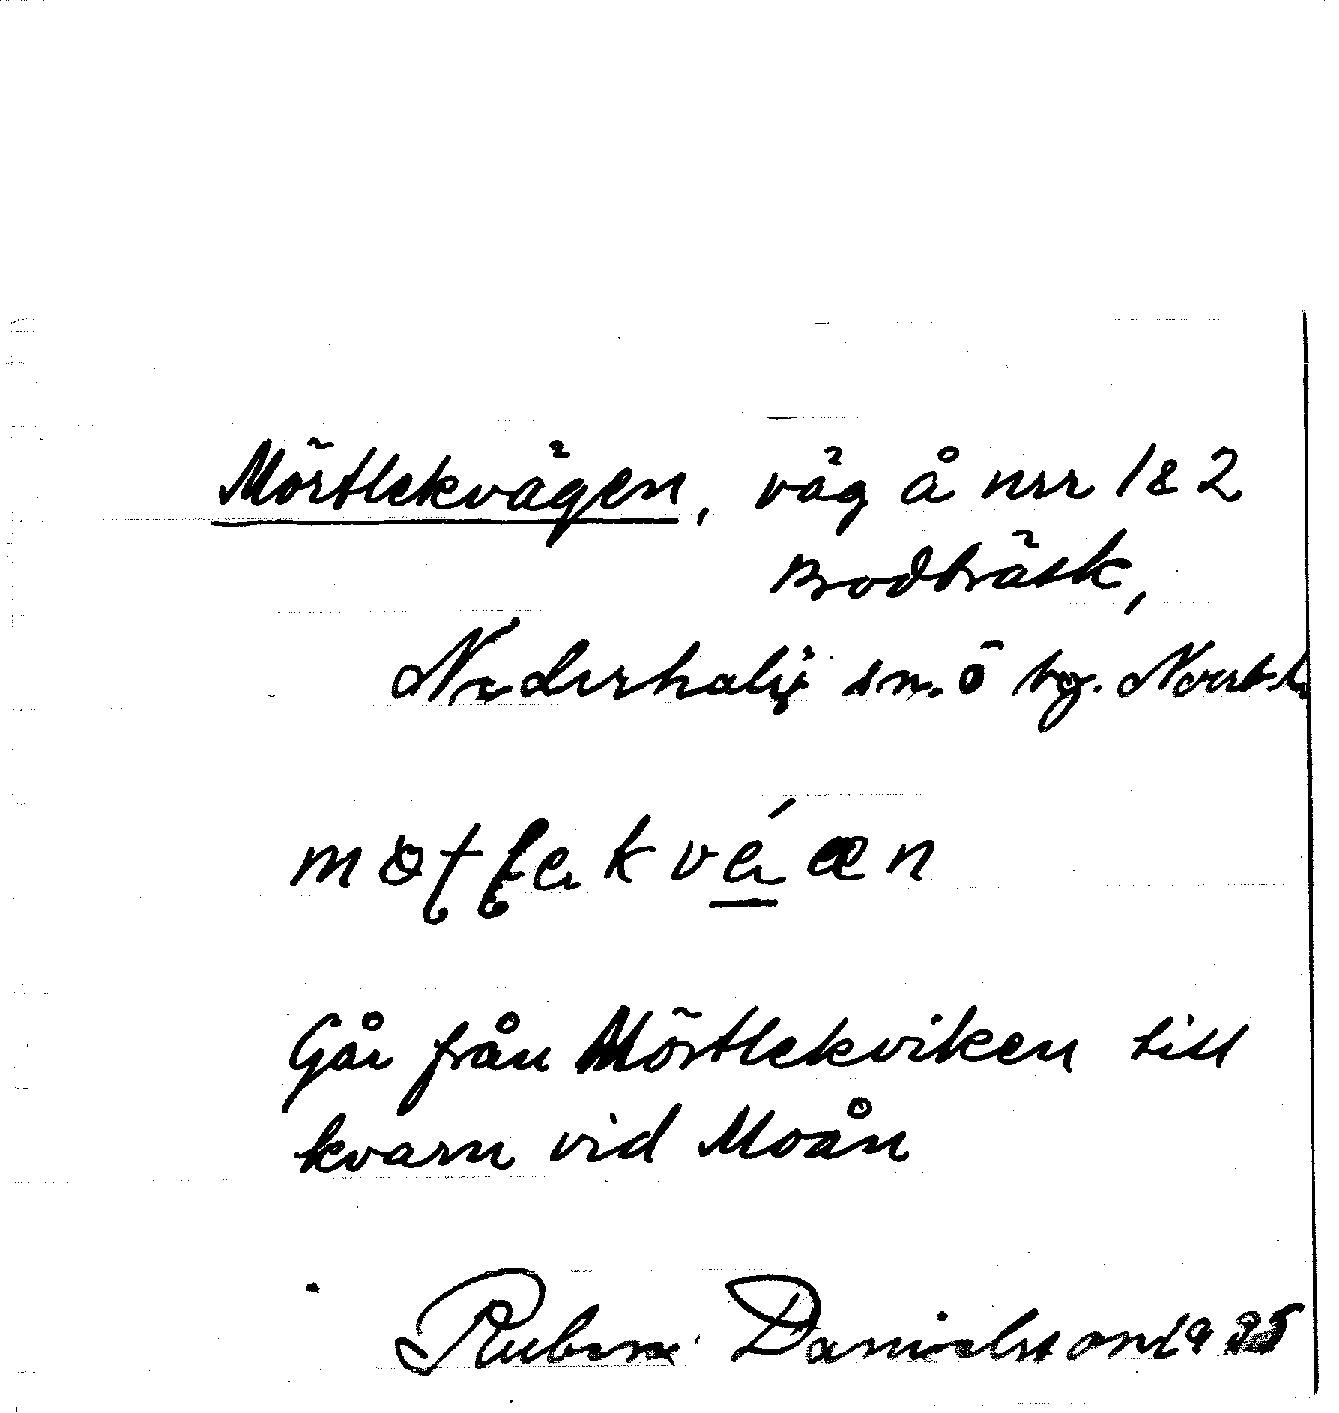 Mörtlekvägen, väg å nrr 1 & 2
Brodträsk,
Nederkalix sn. ö tg. Norrb. l.
Går från Mörtlekviken till
kvarn vid Moån
Ruben Danielsson 1935